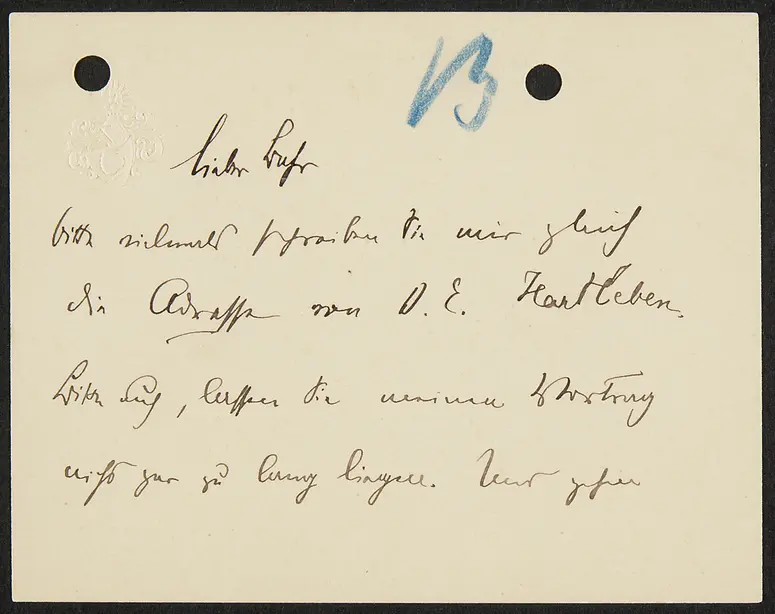 B
lieber Bahr
bitte vielmals schreiben Sie mir gleich
die Adresse von O. E. Hartleben.
Bitte auch, lassen Sie meinen Vortrag
nicht gar zu lang liegen. Und gehen